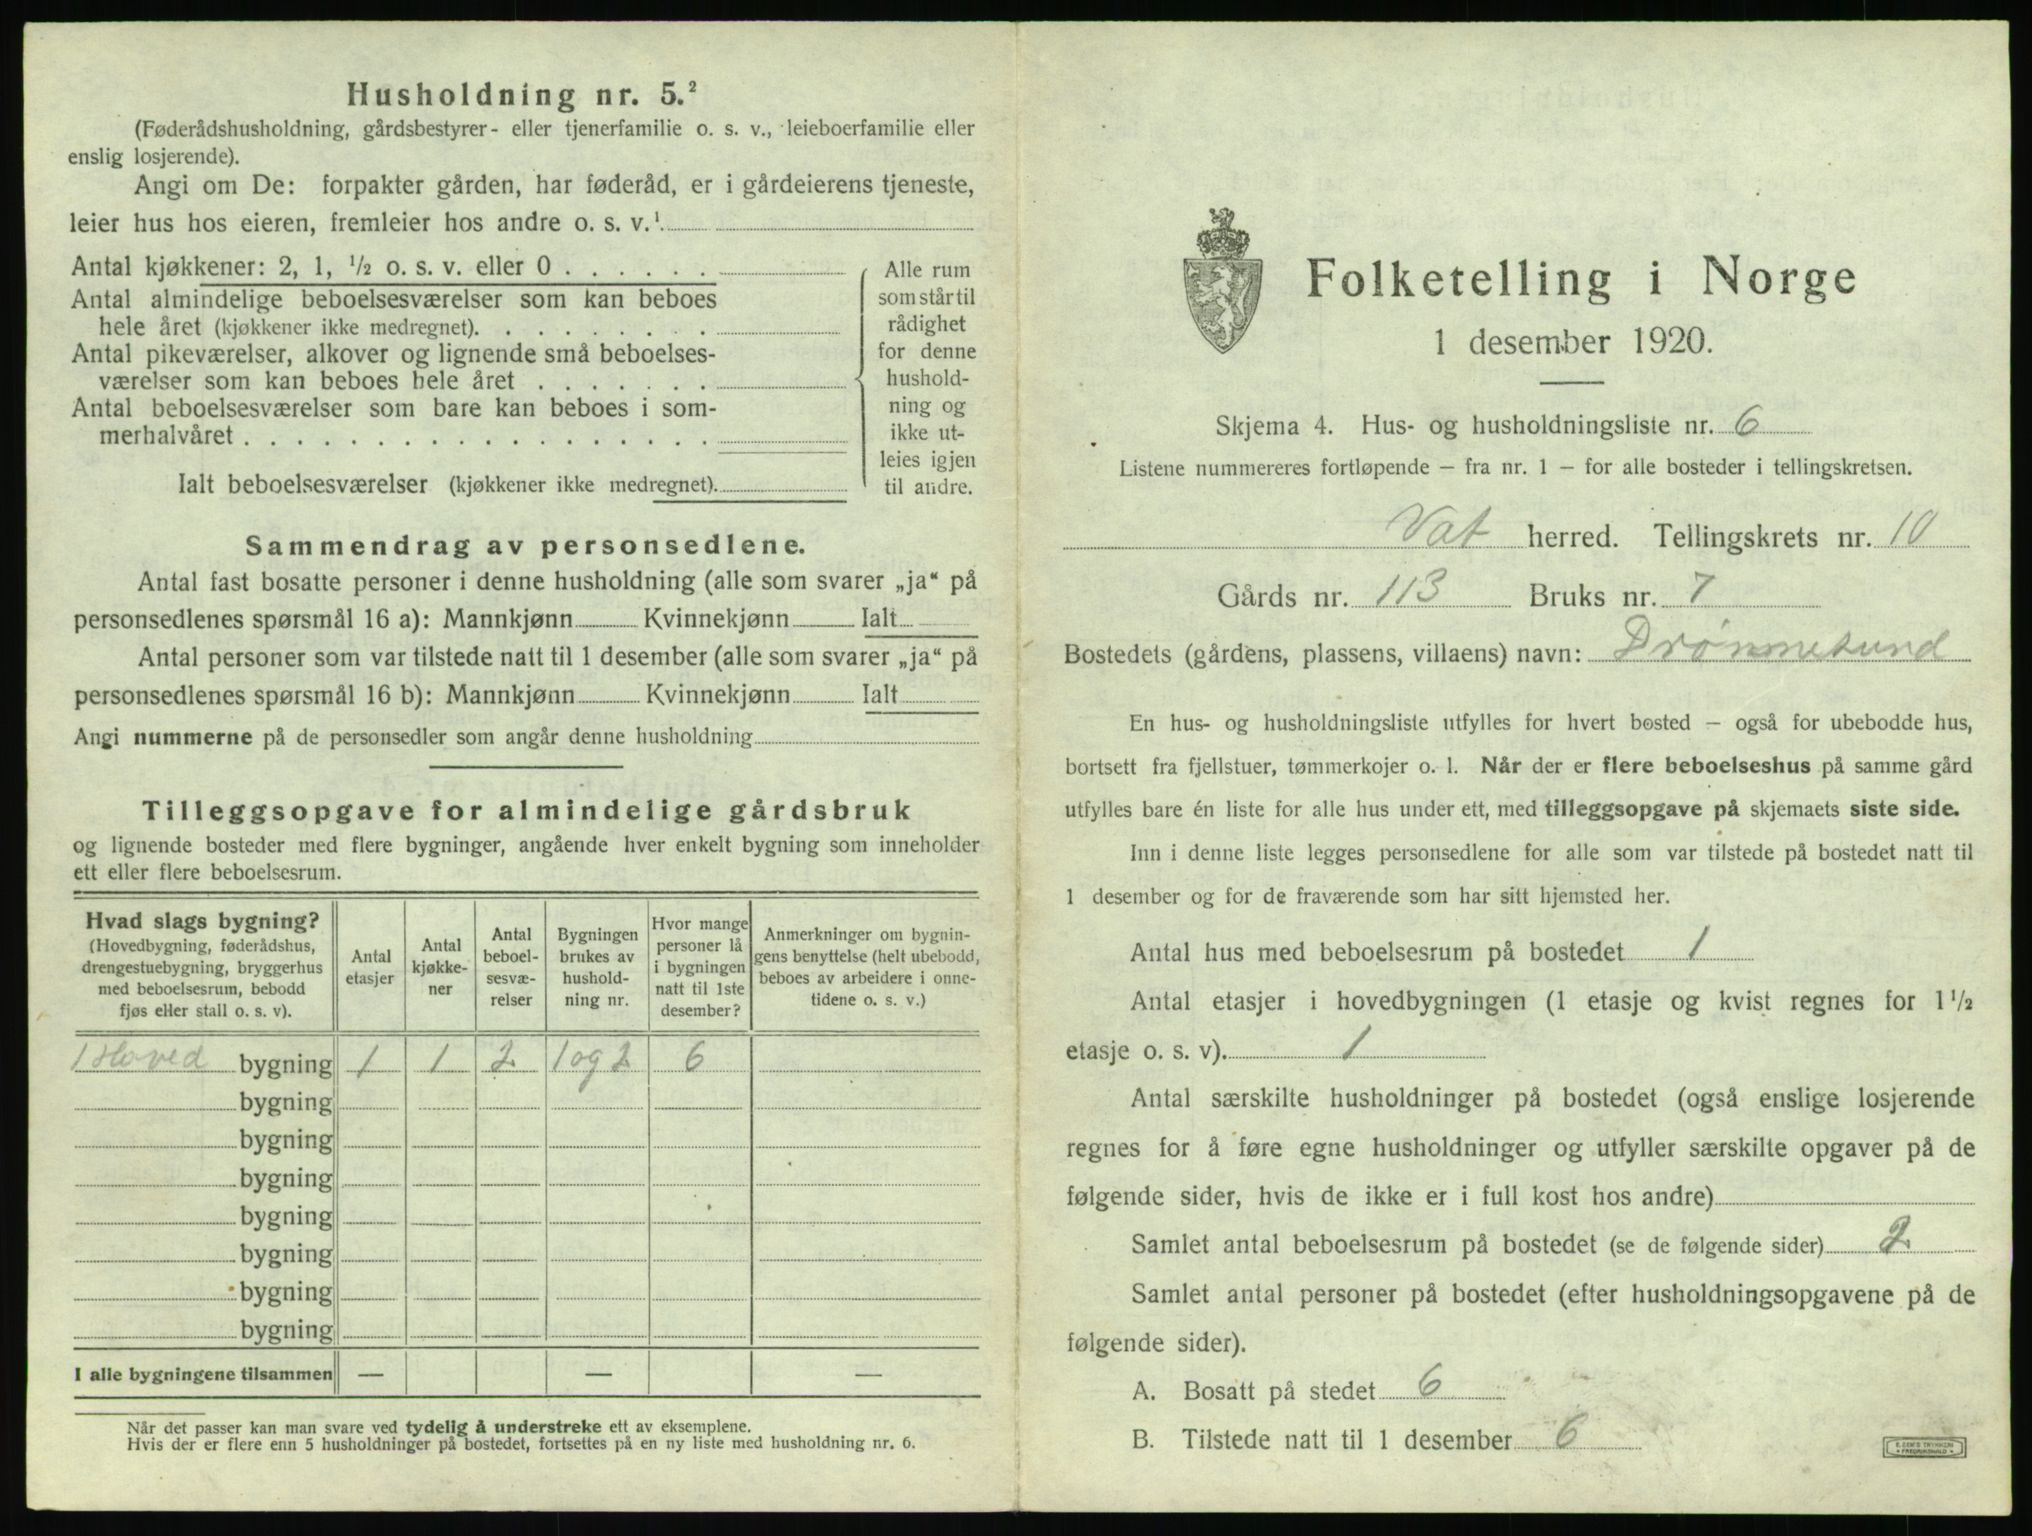 Husholdning nr. 5.²
(Føderådshusholdning, gårdsbestyrer- eller tjenerfamilie o. s. v., leieboerfamilie eller
enslig losjerende).
Angi om De: forpakter gården, har føderåd, er i gårdeierens tjeneste,
leier hus hos eieren, fremleier hos andre o. s. v.¹
Antal kjøkkener: 2, 1, ½ o. s. v. eller 0 . . . . . .
Antal almindelige beboelsesværelser som kan beboes
hele året (kjøkkener ikke medregnet). . . . . . . . .
Antal pikeværelser, alkover og lignende små beboelses-
værelser som kan beboes hele året . . . . . . .
Antal beboelsesværelser som bare kan beboes i som-
merhalvåret . . . . . . . . . . . . . . . . . .
Ialt beboelsesværelser (kjøkkener ikke medregnet).
Alle rum
som står til
rådighet
for denne
hushold-
ning og
ikke ut-
leies igjen
til andre.
Sammendrag av personsedlene.
Antal fast bosatte personer i denne husholdning (alle som svarer „ja“ på
personsedlenes spørsmål 16 a): Mannkjønn Kvinnekjønn Ialt
Antal personer som var tilstede natt til 1 desember (alle som svarer „ja“ på
personsedlenes spørsmål 16 b): Mannkjønn Kvinnekjønn Ialt
Angi nummerne på de personsedler som angår denne husholdning
Tilleggsopgave for almindelige gårdsbruk
og lignende bosteder med flere bygninger, angående hver enkelt bygning som inneholder
ett eller flere beboelsesrum.
Hvad slags bygning?
(Hovedbygning, føderådshus,
drengestuebygning, bryggerhus
med beboelsesrum, bebodd
fjøs eller stall o. s. v).
Antal
etasjer
Antal
kjøkke-
ner
Antal
beboel-
sesvæ-
relser
Bygningen
brukes av
hushold-
ning nr.
Hvor mange
personer lå
i bygningen
natt til 1ste
desember?
Anmerkninger om bygnin-
gens benyttelse (helt ubebodd,
beboes av arbeidere i onne-
tidene o. s. v.)
1 Hoved bygning 1 1 2 1 og 2 6
bygning
bygning
bygning
bygning
bygning
bygning
bygning
I alle bygningene tilsammen — — —
Når det passer kan man svare ved tydelig å understreke ett av eksemplene.
Hvis der er flere enn 5 husholdninger på bostedet, fortsettes på en ny liste med husholdning nr. 6.
Folketelling i Norge
1 desember 1920.
Skjema 4. Hus- og husholdningsliste nr. 6
Listene nummereres fortløpende – fra nr. 1 – for alle bosteder i tellingskretsen.
Vat herred. Tellingskrets nr. 10
Gårds nr. 113 Bruks nr. 7
Bostedets (gårdens, plassens, villaens) navn: Drønnesund
En hus- og husholdningsliste utfylles for hvert bosted – også for ubebodde hus,
bortsett fra fjellstuer, tømmerkojer o. l. Når der er flere beboelseshus på samme gård
utfylles bare én liste for alle hus under ett, med tilleggsopgave på skjemaets siste side.
Inn i denne liste legges personsedlene for alle som var tilstede på bostedet natt til
1 desember og for de fraværende som har sitt hjemsted her.
Antal hus med beboelsesrum på bostedet 1
Antal etasjer i hovedbygningen (1 etasje og kvist regnes for 1½
etasje o. s. v). 1
Antal særskilte husholdninger på bostedet (også enslige losjerende
regnes for å føre egne husholdninger og utfyller særskilte opgaver på de
følgende sider, hvis de ikke er i full kost hos andre)
Samlet antal beboelsesrum på bostedet (se de følgende sider) 2
Samlet antal personer på bostedet (efter husholdningsopgavene på de
følgende sider).
A. Bosatt på stedet 6
B. Tilstede natt til 1 desember 6